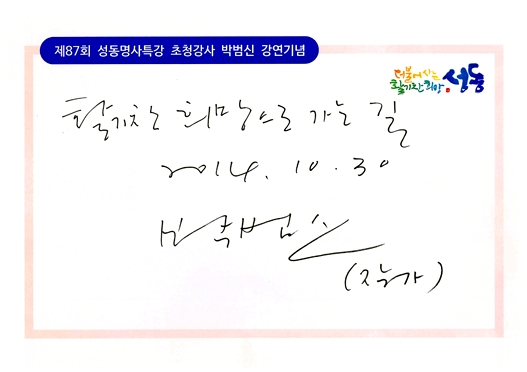 제87회 성동명사특강 초청강사 박범신 강연기념
더불어사는
활기찬 희망 성동
활기찬 희망으로 가는 길
2014. 10. 30
박범신
(작가)